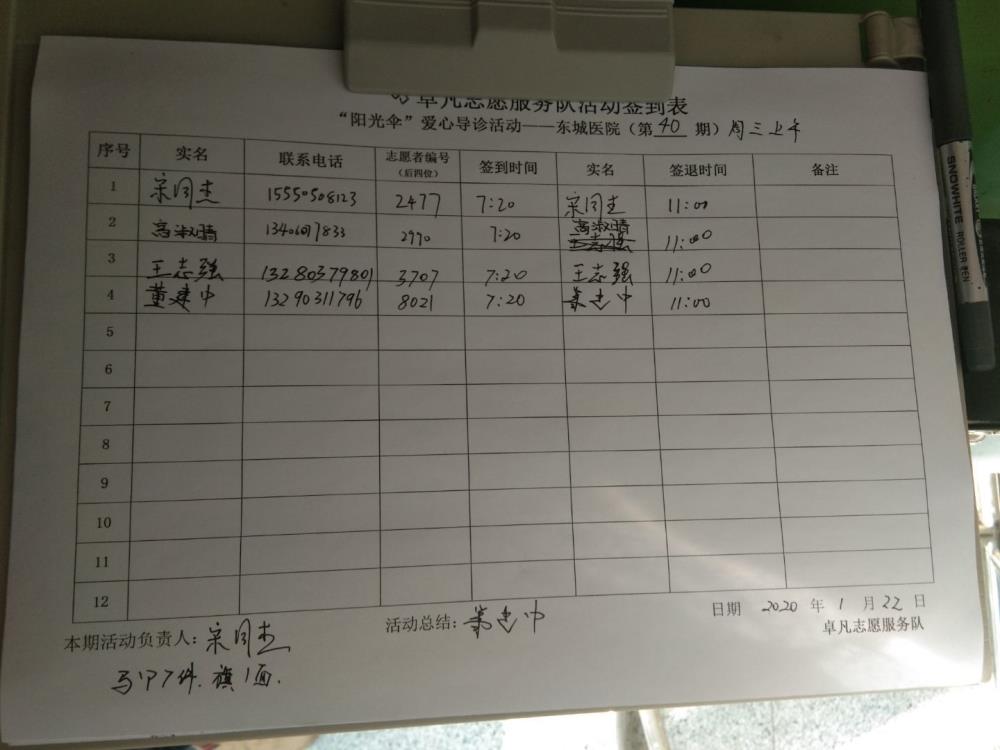 卓凡志愿服务队活动签到表
“阳光伞”爱心导诊活动——东城医院（第 40 期）周三上午
序号 实名 联系电话 志愿者编号（后四位） 签到时间 实名 签退时间 备注
1 宋同杰 15550508123 2477 7:20 宋同杰 11:00
2 高淑晴 2990 7:20 高淑晴 王志强 11:00
3 王志强 13280379801 3707 7:20 王志强 11:00
4 董建中 13290311796 8021 7:20 董建中 11:00
5
6
7
8
9
10
11
12
日期 2020 年 1 月 22 日
本期活动负责人：宋同杰 活动总结：董建中 卓凡志愿服务队
马甲7件.旗1面.
SNOWHITE ROLLER PEN